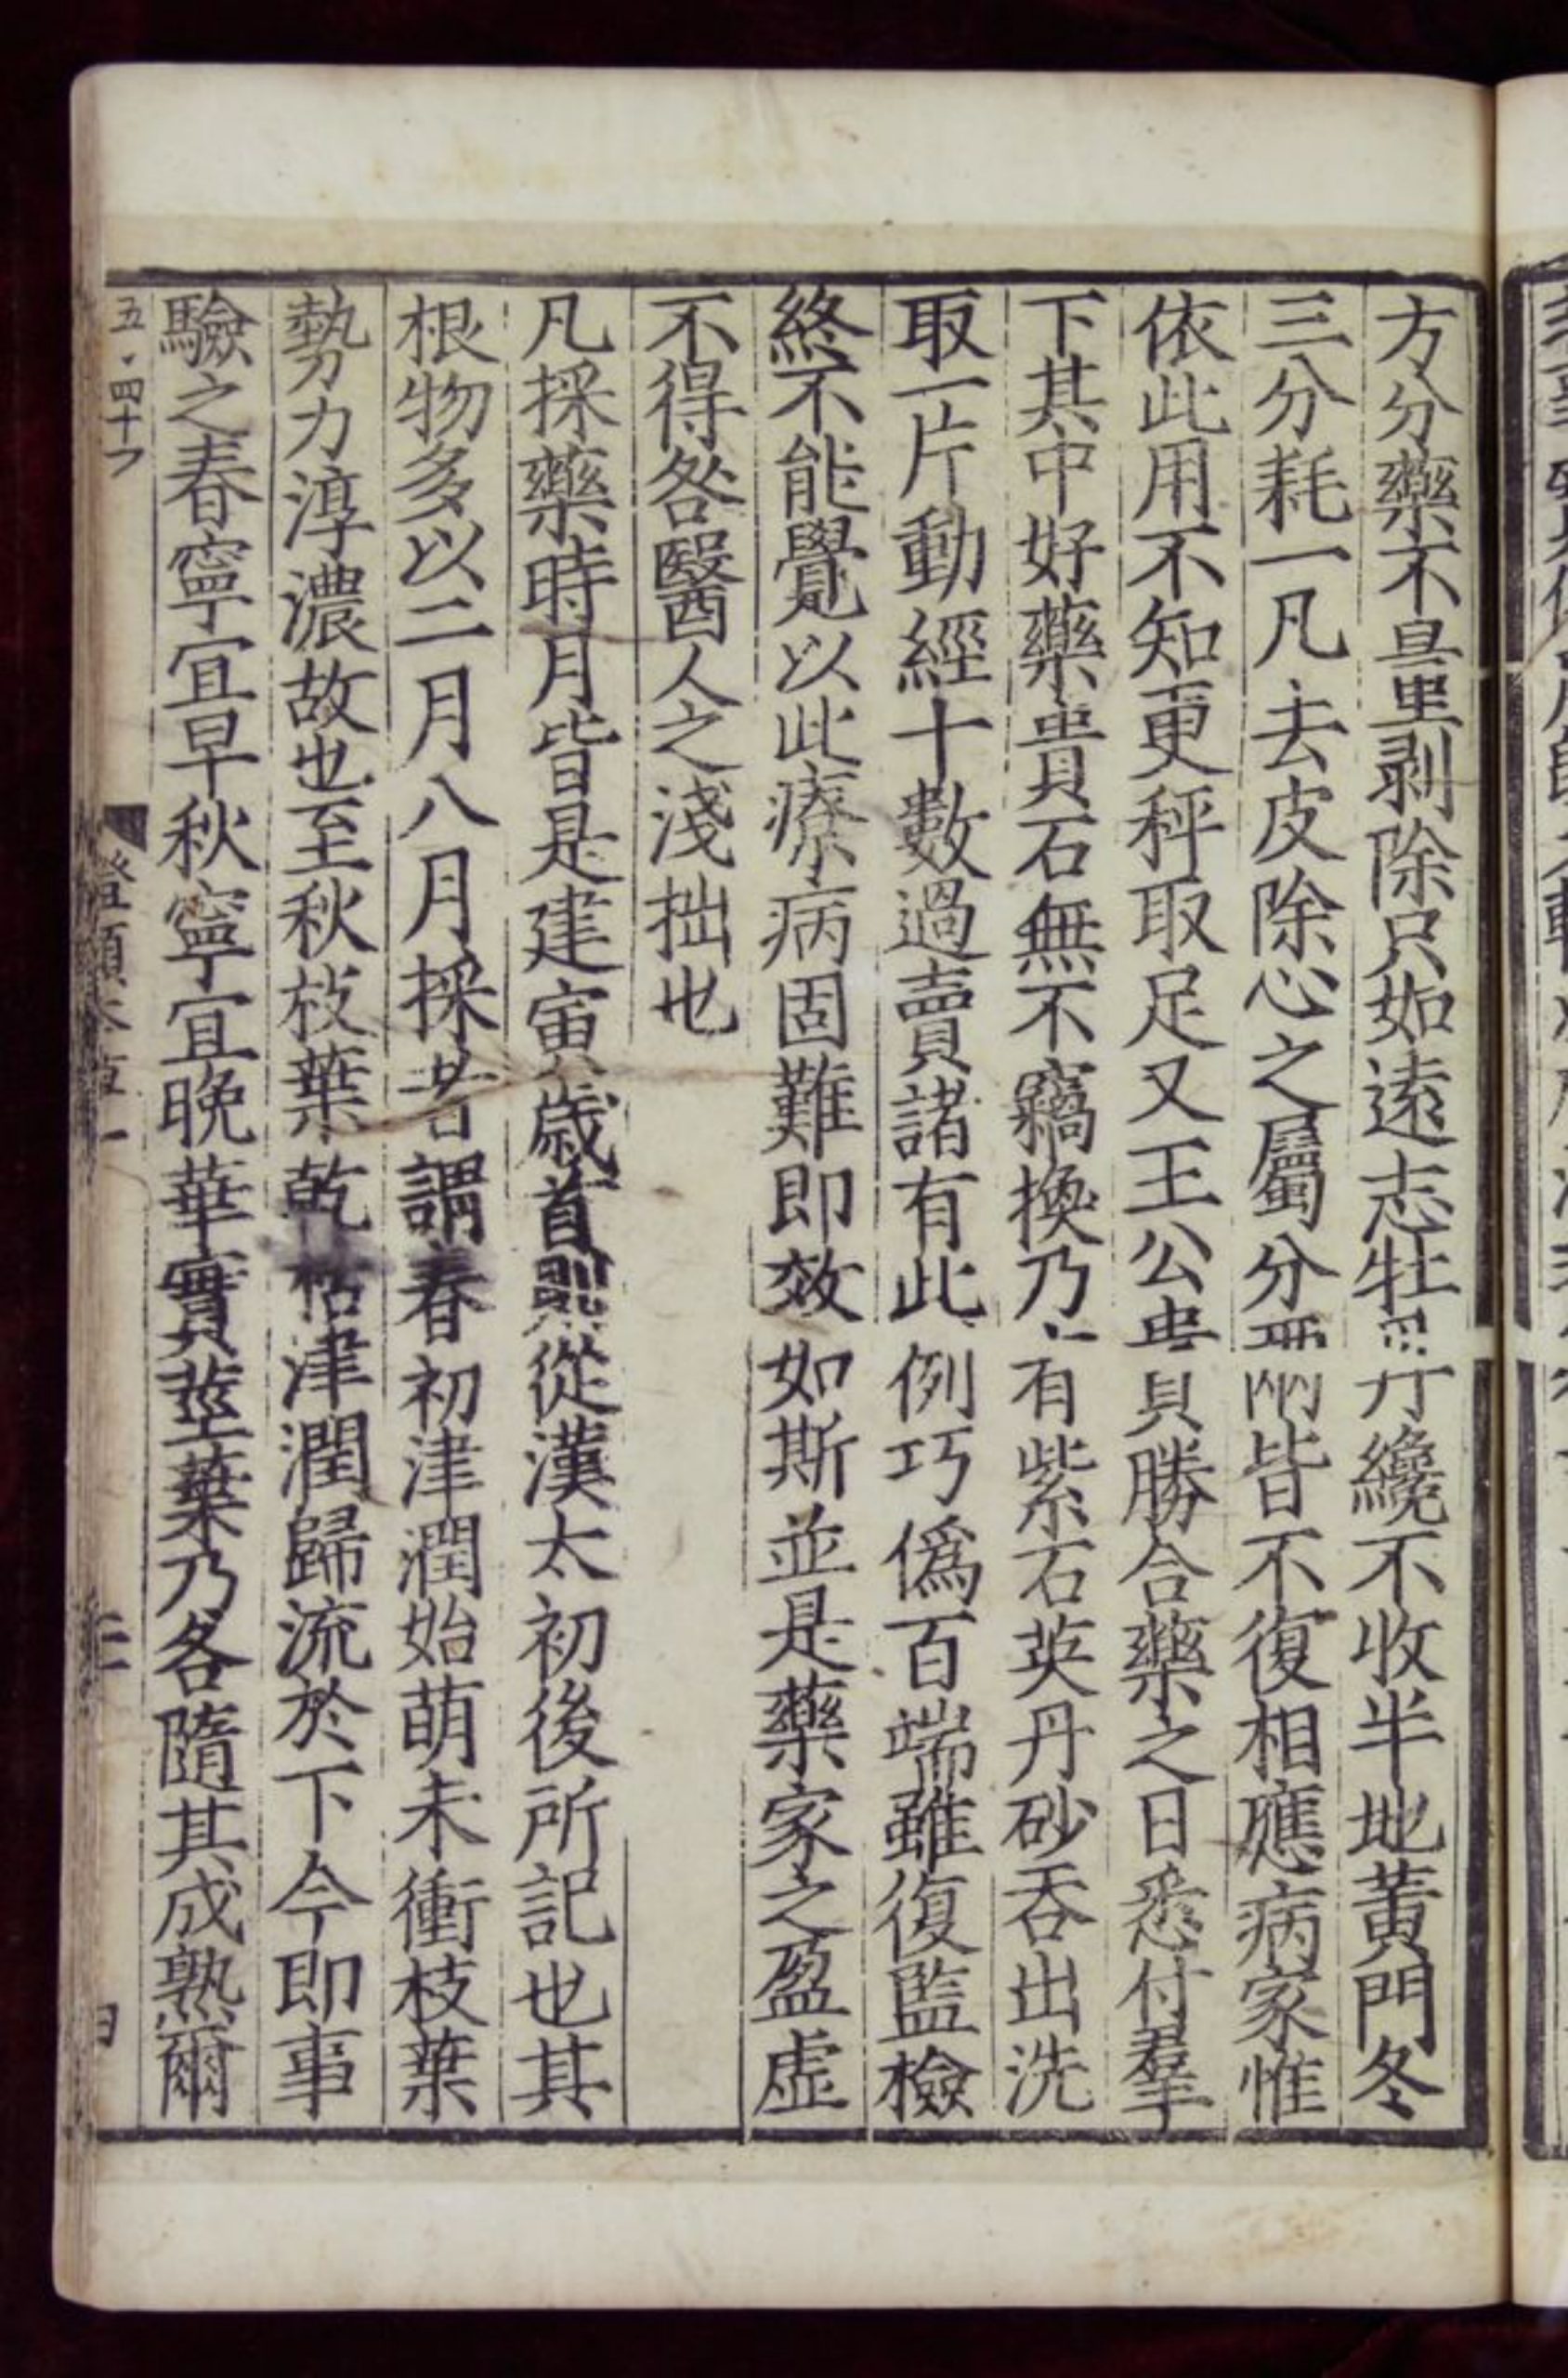 方分藥不量剥除只如遠志牡丹纔不收半地黃門冬
三分耗一凡去皮除心之屬分兩皆不復相應病家惟
依此用不知更秤取足又王公貴勝合藥之日悉付羣
下其中好藥貴石無不竊換乃有紫石英丹砂吞出洗
取一片動經十數過賣諸有此例巧僞百端雖復監檢
終不能覺以此療病固難即效如斯並是藥家之盈虛
不得咎醫人之淺拙也
凡採藥時月皆是建寅歲首從漢太初後所記也其
根物多以二月八月採者謂春初津潤始萌未衝枝葉
勢力淳濃故也至秋枝葉乾枯津潤歸流於下今即事
驗之春寧宜早秋寧宜晚華實莖葉乃各隨其成熟爾
五、四十